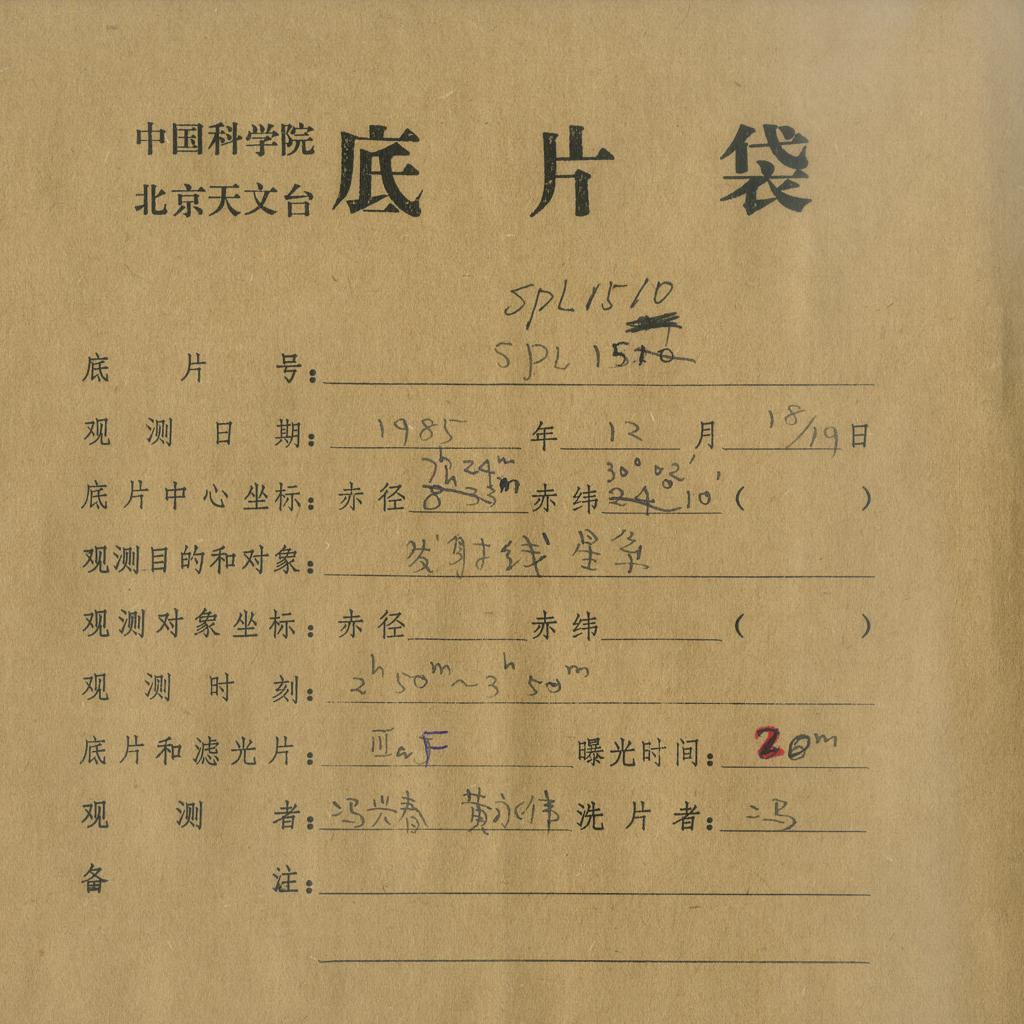 中国科学院
北京天文台
底片袋
SPL1510
底片号：SPL 1510
观测日期：1985年12月18/19日
7h 24m 30° 02′
底片中心坐标：赤径 8h 33m 赤纬 24° 10′ （ ）
观测目的和对象：发射线星系
观测对象坐标：赤径 赤纬 （ ）
观测时刻：2h 50m～3h 50m
底片和滤光片：IIIaF 曝光时间：20m
观测者：冯兴春 黄永伟 洗片者：冯
备注：